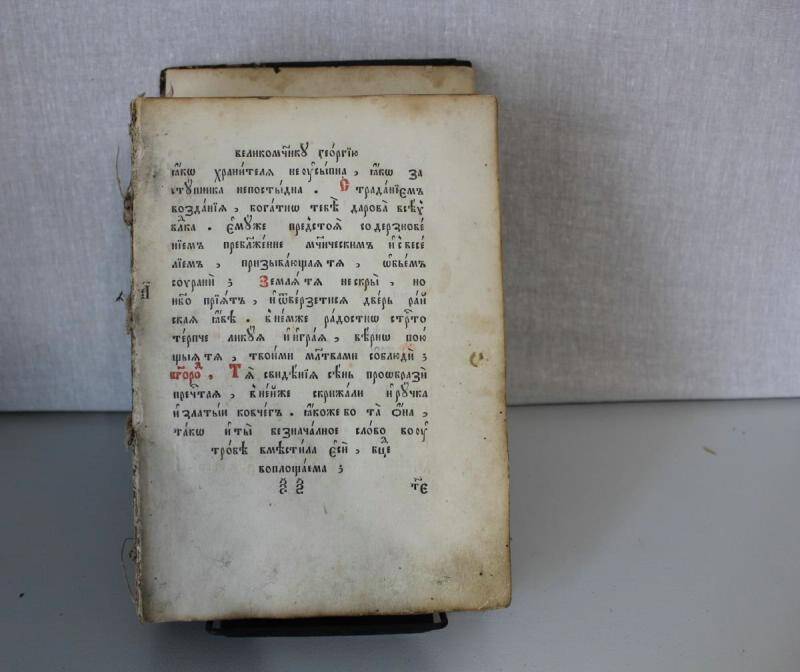 великомч҃нкꙋ гео́ргїю
ꙗ҆́кѡ храни́телѧ неꙋсы́пна , ꙗ҆́кѡ за
стꙋ́пника непосты́дна . Страда́нїемъ
возда́нїѧ , бога́тнѡ тебѣ̀ дарова̀ всѣ́хъ
вл҃ка . є҆мꙋ́же предстоѧ̀ содерзнове́
нїемъ преблаже́нне мч҃ническимъ и҆свесе́
лїемъ , призыва́ющаѧ тѧ , ѡ҆бье́мъ
сохранѝ ⁏ Землѧ́ тѧ нескры̀ , но
не́бо прїѧ́тъ , и҆ѿве́рзетисѧ две́рь ра́й
скаѧ ꙗ҆́вѣ . в̾не́мже ра́достнѡ стрⷭ҇то
те́рпче ликꙋ́ѧ и҆и҆гра́ѧ , вѣ́рнѡ пою́
щыѧ тѧ , твои́ми мл҃твами соблюдѝ ⁏
бг҃оро . Тѧ̀ свидѣ́нїѧ сѣ́нь проѡбразѝ
пречⷭ҇таѧ , в̾не́йже скрижа́ли и҆рꙋ́чка
и҆златы́й ковче́гъ . ꙗ҆́коже бо та̀ ѻ҆́на ,
та́кѡ и҆ты̀ безнача́лное сло́во воꙋ
тро́бѣ вмѣсти́ла є҆сѝ , бц҃е
воплоща́ема ⁏